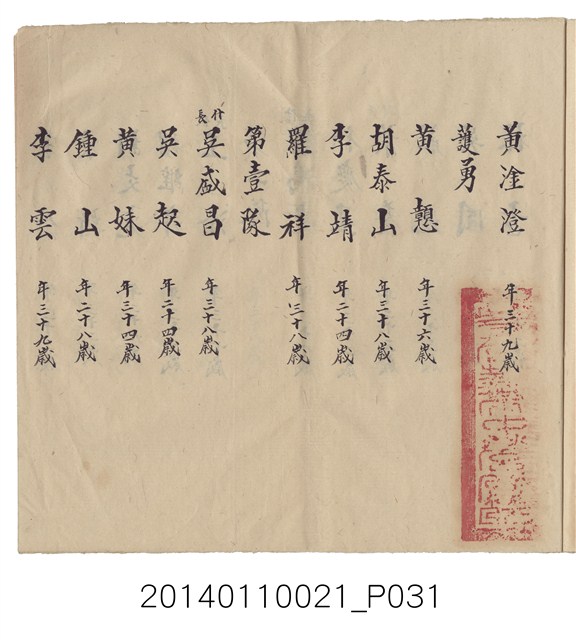 黃淦澄 年三十九歲
護勇
黃憩 年三十六歲
胡泰山 年三十八歲
李靖 年二十四歲
羅祥 年三十八歲
第壹隊
什長 吳盛昌 年三十八歲
吳起 年二十四歲
黃妹 年三十四歲
鍾山 年二十八歲
李雲 年三十九歲
20140110021_P031